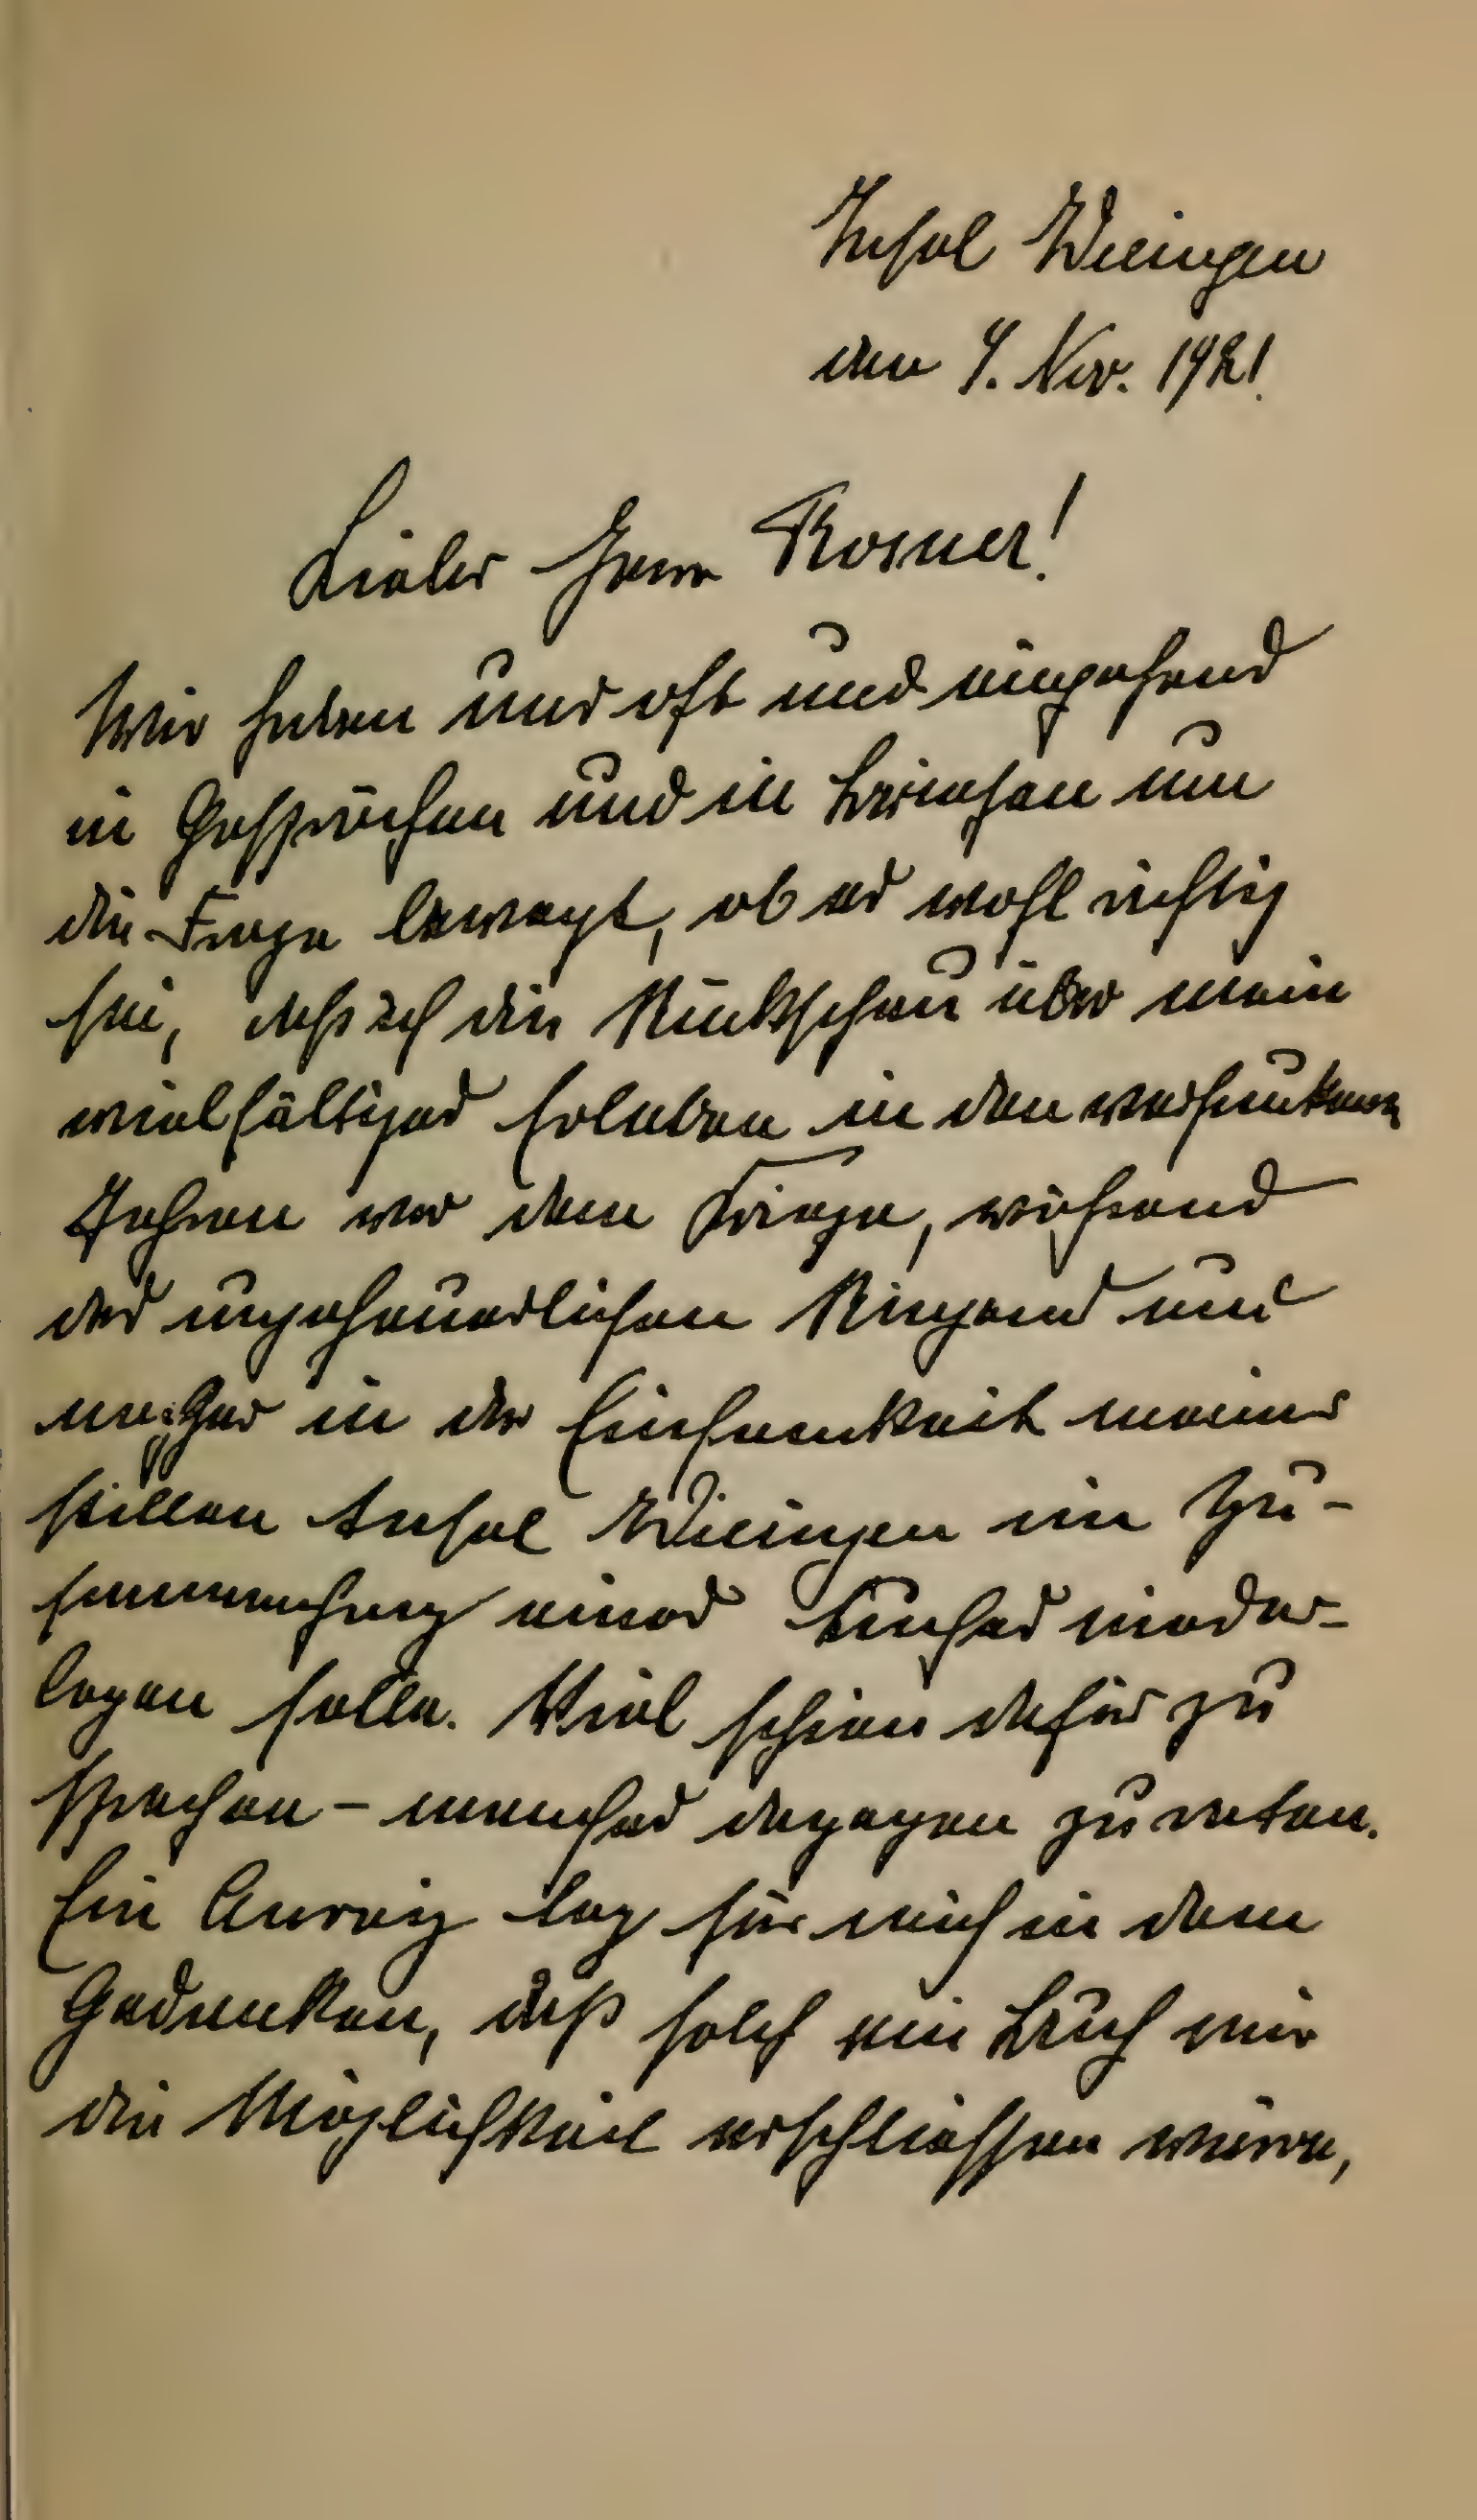 Insel Wieringen
den 9. Nov. 1921.
Lieber Herr Rosner!
Wir haben uns oft und eingehend
in Gesprächen und in Briefen um
die Frage bewegt, ob es wohl richtig
sei, daß ich die Rückschau über mein
vielfältiges Erleben in den versunkenen
Jahren vor dem Kriege, während
des ungeheuerlichen Ringens und
nachher in der Einsamkeit meiner
stillen Insel Wieringen im Zu-
sammenhang eines Buches nieder-
legen solle. Viel schien dafür zu
sprechen – manches dagegen zu reden.
Ein Anreiz lag für mich in dem
Gedanken, daß solch ein Buch mir
die Möglichkeit erschliessen würde,